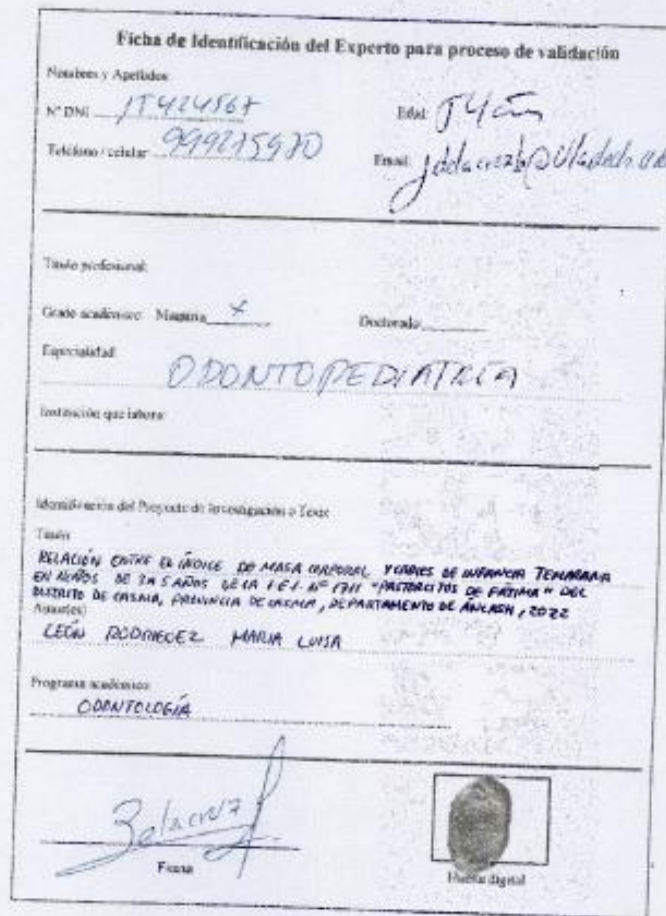 Ficha de Identificación del Experto para proceso de validación
Nombres y Apellidos:
N° DNI
Edad:
Teléfono / celular: 999215970
Email:
Título profesional:
Grado académico: Maestría x Doctorado
Especialidad:
ODONTOPEDIATRÍA
Institución que labora:
Identificación del Proyecto de Investigación o Tesis
Título:
RELACIÓN ENTRE EL ÍNDICE DE MASA CORPORAL Y CARIES DE INFANCIA TEMPRANA
EN NIÑOS DE 3 A 5 AÑOS DE LA I.E.I. N° 1711 "PASTORCITOS DE FÁTIMA" DEL
DISTRITO DE CASMA, PROVINCIA DE CASMA, DEPARTAMENTO DE ÁNCASH, 2022
Autor(es):
LEÓN RODRIGUEZ MARIA LUISA
Programa académico:
ODONTOLOGÍA
Firma
Huella digital